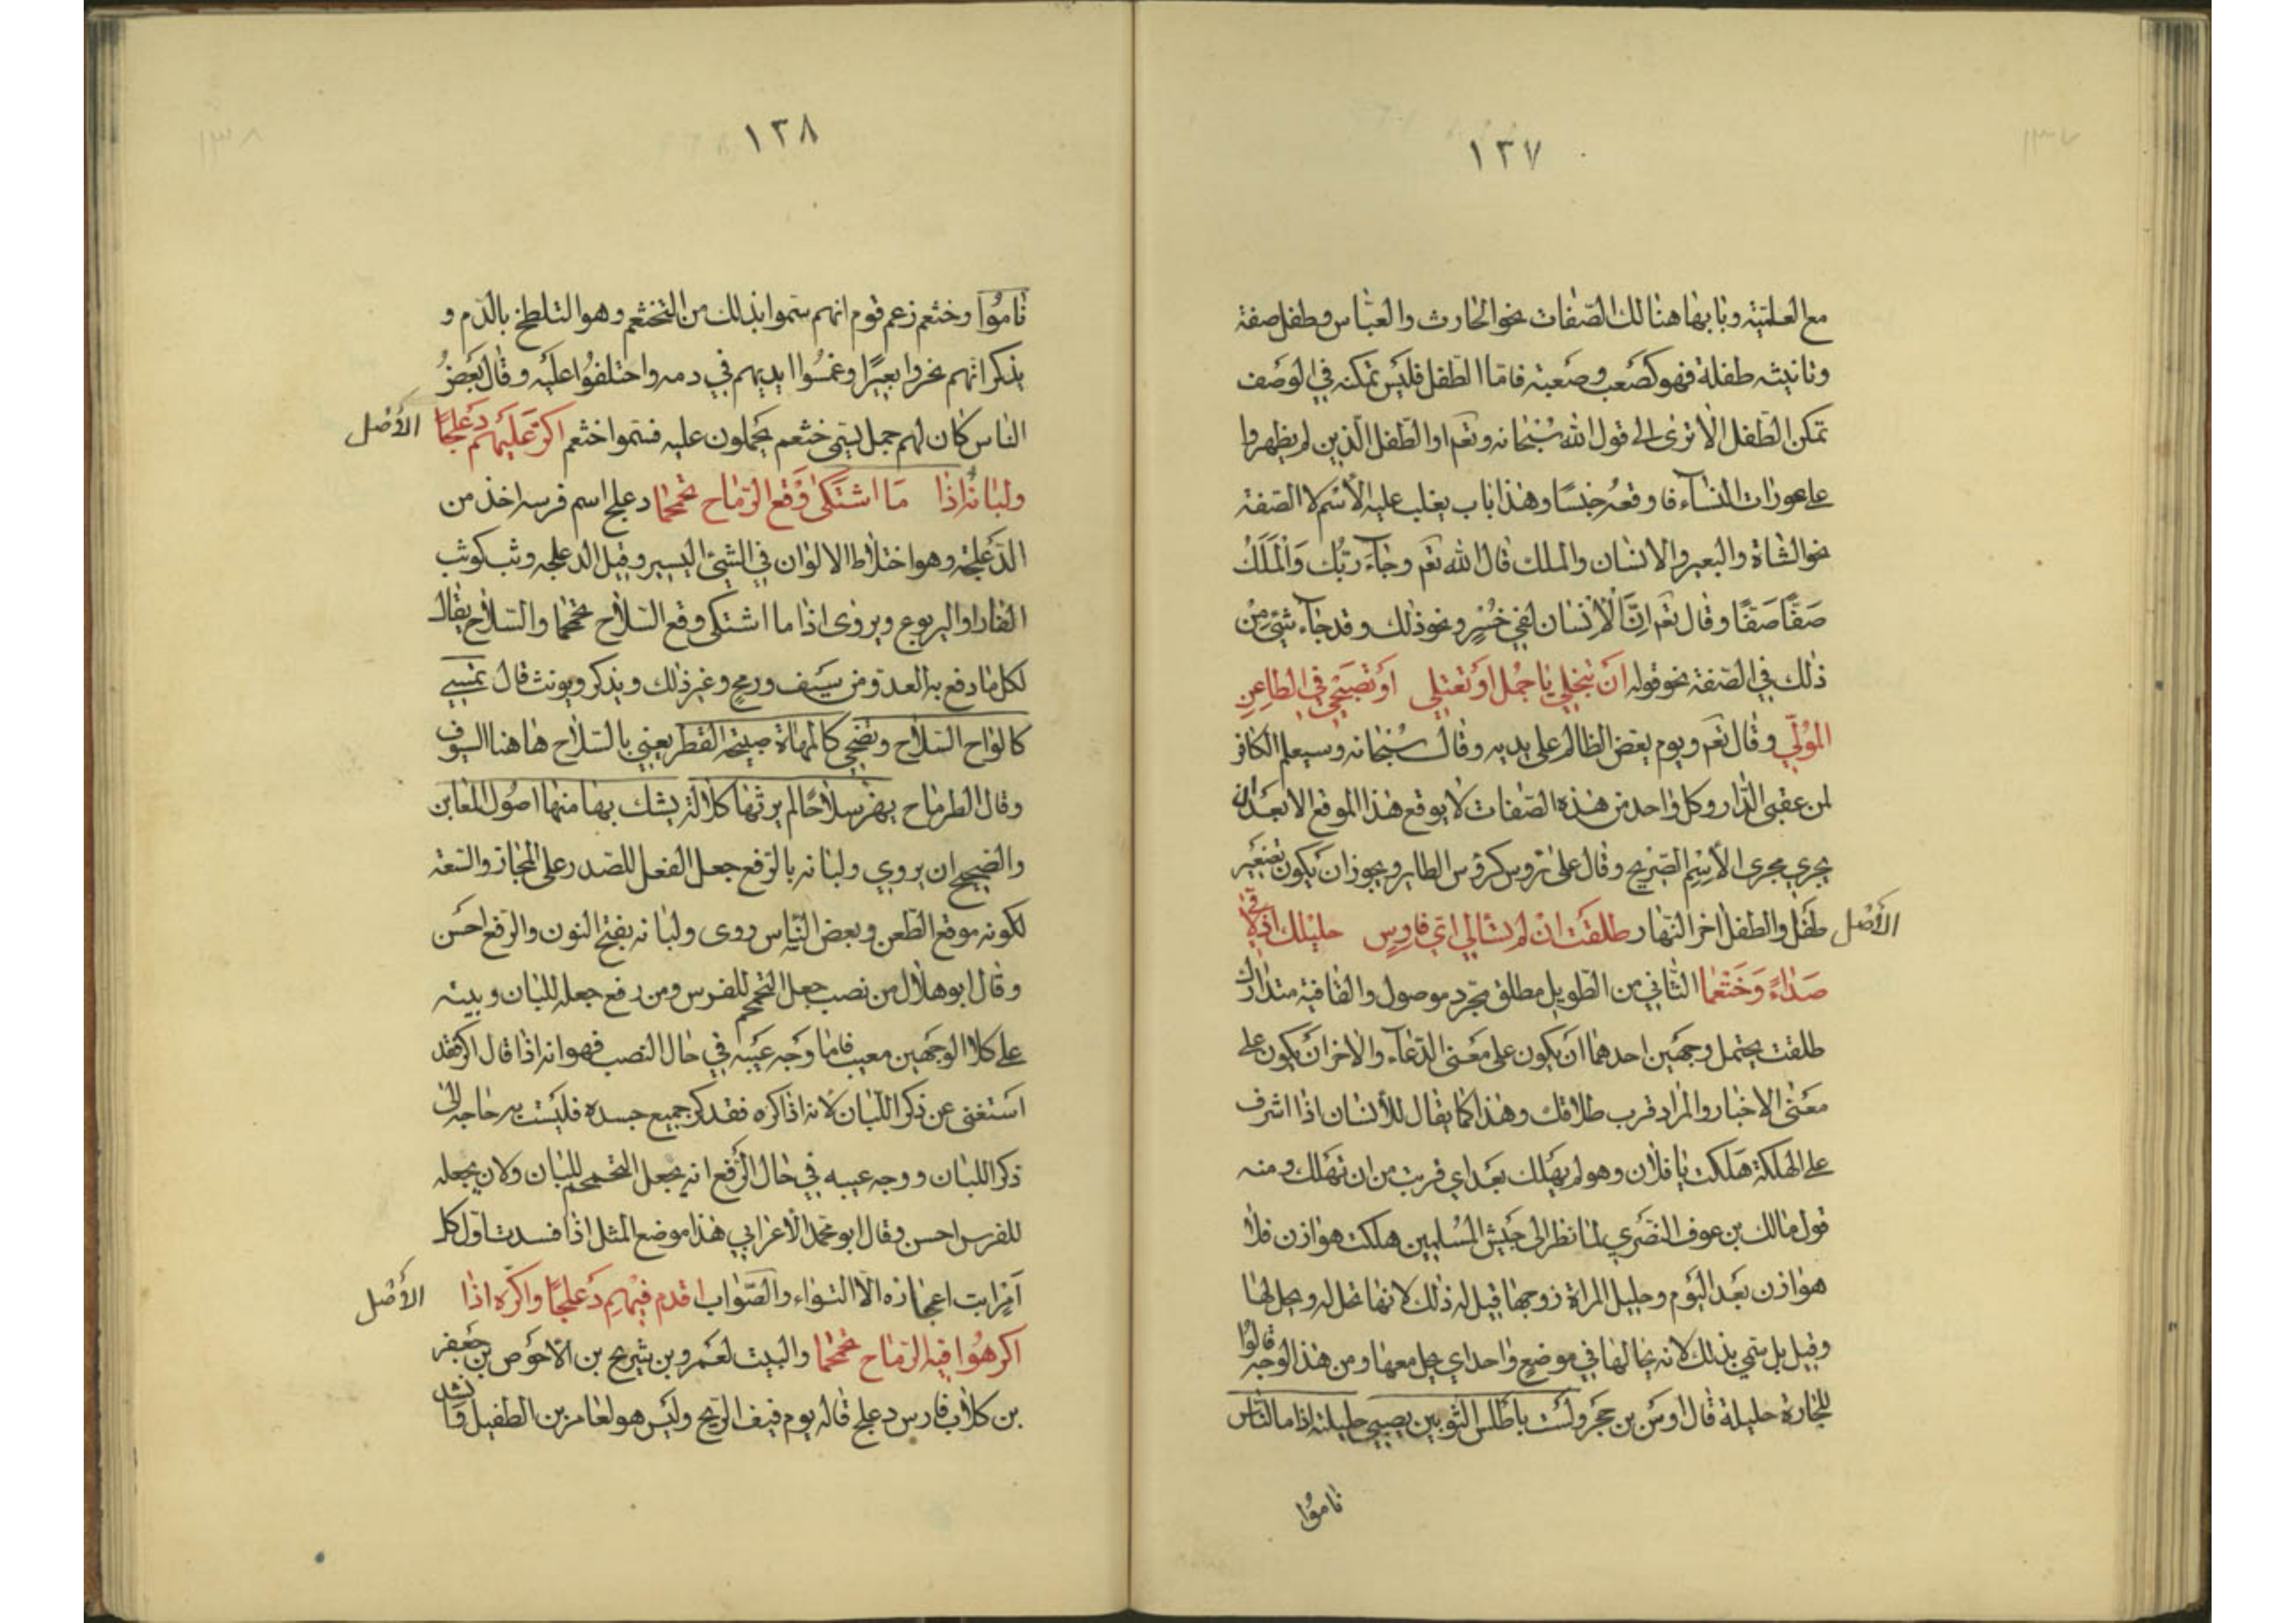 ١٣٧
مع العلمية وبابها هنالك الصفات نحو الحارث والعباس وطفل صفة
وتانيثه طفلة فهو كصَعب وصَعبة فامّا الطفل فليَس تمكنه في الوَصف
تمكن الطّفل الا ترى الى قول الله سُبْحانه وتعَم اوالطّفل الّذين لم يظهروا
على عورات النساۤء فاوقعُه جنسًا وهذا باب يغلب عليه الأسْم لا الصّفة
نحو الشاة والبعير والانسان والملك قال الله تعَم وجاۤءَ رَبُّك وَالْمَلَكُ
صَفًّا صَفًّا وقال تعَم اِنَّ الْاِنْسان لَفي خُسْرٍ ونحو ذلك وقد جاۤء شيئ مِنْ
ذلك في الصّفة نحو قوله اِنْ تبْخلي يا جُمْل اَوْ تَعْتلي اَوْ تُصْبحي في الظاعِنِ
المُوَلّي وقال تعَم ويوم يعَضّ الظالم على يديه وقال سُبْحانه وسيعلم الكافر
لمن عقبى الدّار وكل واحد من هذه الصّفات لا يوقع هذا الموقع الا بعَد ان
يجري مجرى الأسْمِ الصّريح وقال على تروس كرؤس الطاير ويجوز ان يَكون تصْغَير
طَفَل والطفل اخر النّهار طلقَت انْ لم تسْالي ايّ فارِسٍ حليْلك اذ لاقى
الأصْل
صَدَاءً وَخَثْعَما الثّاني من الطّويل مطلق مجّرد موصول والقافية متدارك
طلقت يحتمل وجهَين احدهما اَنْ يكون على معَنى الدّعاۤء والاخر اَنْ يكون على
معَنى الاخبار والمراد قرب طلاقك وهذا كما يقال للأنسان اذا اشرف
على الهلكة هَلكت يا فلان وهو لم يهْلك بعَد اي قربت من ان تهَلك ومنه
قول مالك بن عوف النصَري لمّا نظر الى جَيْش المُسْلمِين هلكت هوازن فلا
هوازن بعَد اليَوْم وحليل المراة زوجها قيل له ذلك لانها تحل له ويحل لها
وقيل بل سمّي بذلك لانه يحالها في موضعٍ واحد اي يحل معها ومن هذا الوجه قالوُا
للجارة حليلة قال اوسَ بن حَجَر ولَسْت باطلس الثوبين يصبي حليلته اذا ما النّاس
نامُوا
١٣٨
نامُوا وخثعم زعم قوم انهم سمّوا بذلك من التخثعم وهو التلطخ بالدّم و
يذكر انهم نحروا بعيرًا وغمسُوا ايديهم في دمه واختلفُوا عليْه وقال بعَضُ
الناس كان لهم جمل يسمّى خثعم يحملون عليه فسَمّوا خثعم اَكرّ عَلَيهِم دَعْلجًا
الأصْل
ولبانُه اذا مَا اشتَكى وَقْع الرّماح تحَمْحَما دعلج اسم فرسه اخذ من
الدّعْلجة وهو اختلاط الالوان في الشيئ اليسير وقيل الدعلجه وثب كوثب
الفار او اليربوع ويروى اذا ما اشتكى وقع السّلاح تحمْحما والسّلاح يقال
لكل ما دفع به العدوّ من سَيْف ورمحٍ وغير ذلك ويذكر ويونث قال يمَسي
كالواح السّلاح ويضحي كالمهاة صبيحة القطر يعني بالسّلاح هاهنا السيوف
وقال الطرماح يهزّ سلاحًا لم يرثها كلالة يشك بها منها اصُول المغابن
والصحيح ان يروي ولبانه بالرّفع جعل الفعل للصّدر على المجاز والسّعة
لكونه موقع الطعن وبعض النّاس روى ولبانه بفتح النون والرّفع احسَن
وقال ابو هلال من نصب جعل التحمحم للفرس ومن رفع جعله للبان وبيته
على كلا الوجهين معيب فامّا وَجه عَيبه في حال النصب فهو انه اذا قال اكرّه فقد
استغنى عن ذكر اللّبان لانه اذا كره فقد كر جميع جسده فليْست به حاجة الى
ذكر اللبان ووجه عيبه في حال الرّفع انه يجعل التحمحم للبان ولان يجعله
للفرس احسن وقال ابو محمّد الأعْرابي هذا موضع المثل اذا فسدت اوّل كل
اَمْر ابت اعجازه الّا التواء والصّوَاب اقدم فيْهِم دَعلجًا واكرّه اذا
الأصْل
اكرهُوا فيه الرّماح تحمْحما والبيت لعَمرو بن شريح بن الاحوَص بن جَعفر
بن كلاب فارس دعلج قاله يوم فيف الرّيح وليَس هو لعامر بن الطفيل وانشد